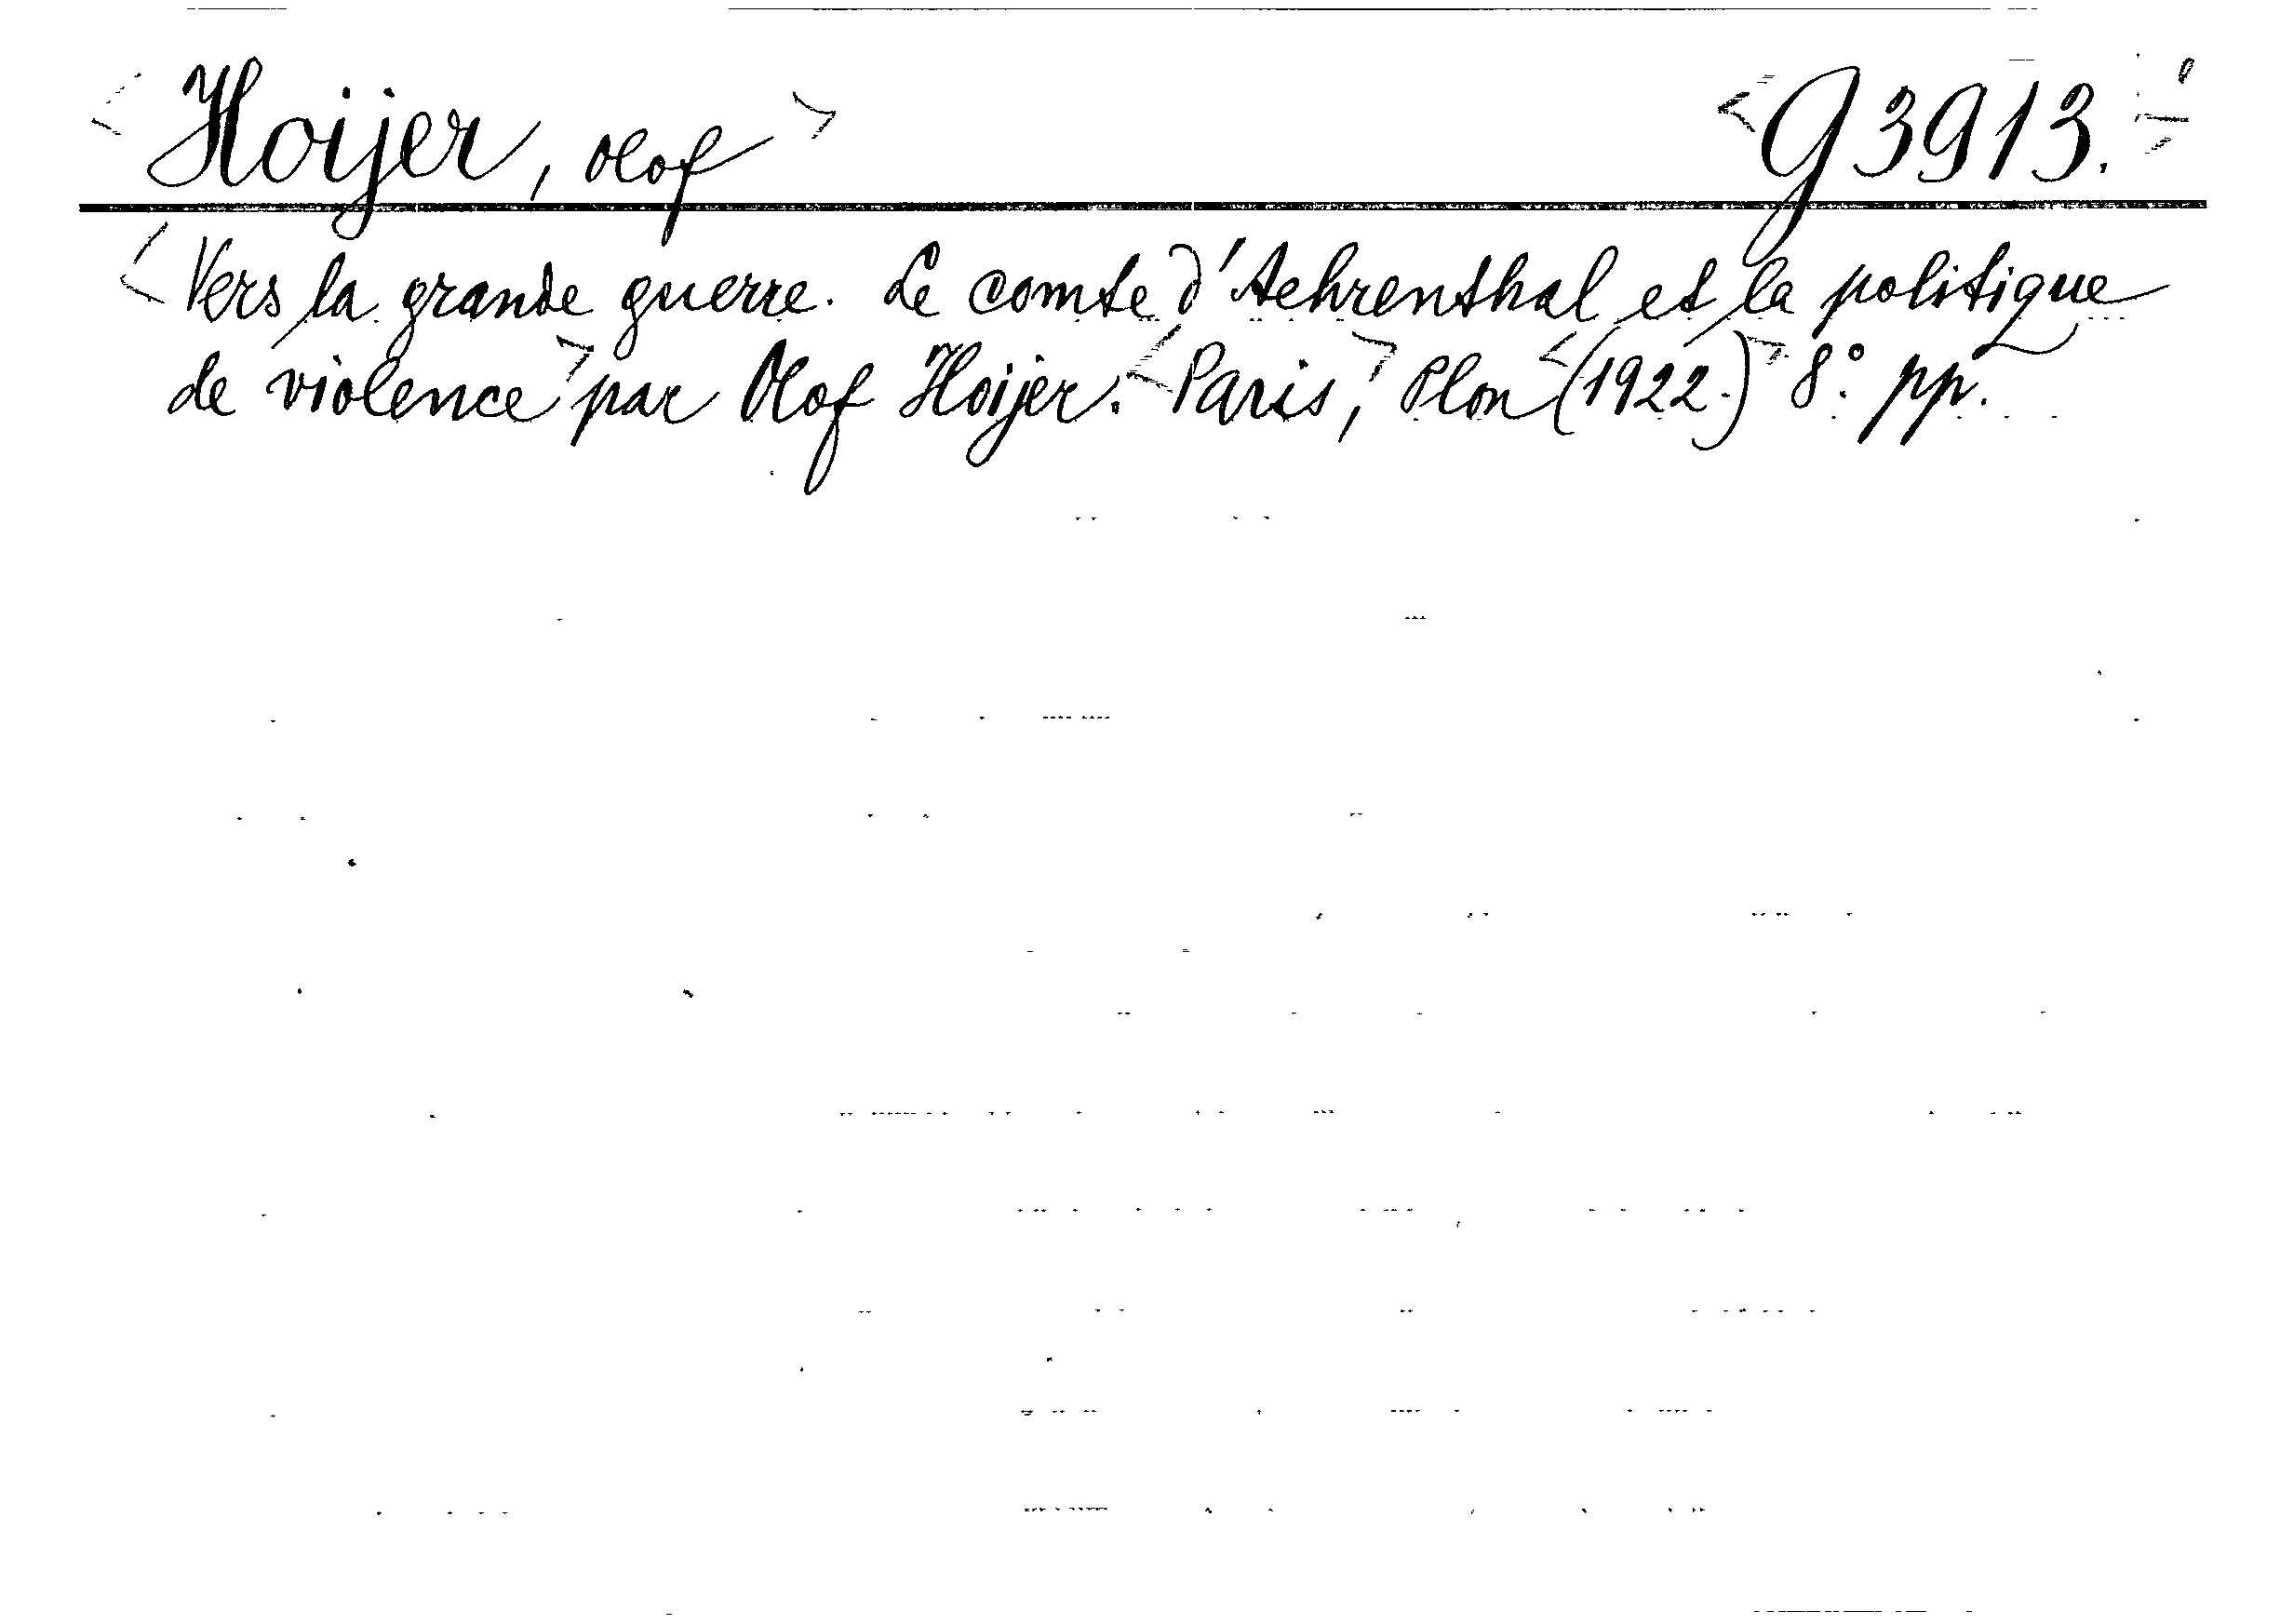 <Hoijer, Olof> <G 3913.>
<Vers la grande guerre. Le comte d'Aehrenthal et la politique
de violence> par Olof Hoijer. <Paris,> Plon <(1922.)> 8° pp.